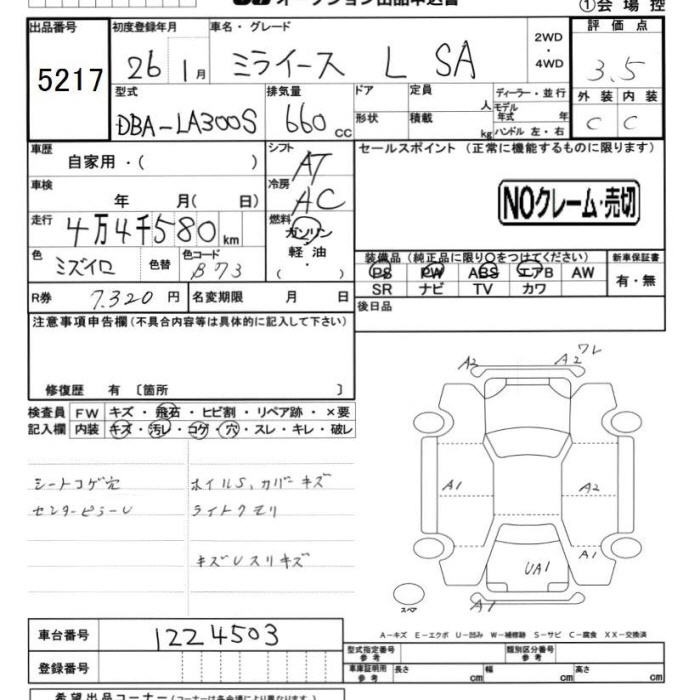 オークション出品申込書
①会場控
出品番号 初度登録年月 車名・グレード 2WD・4WD 評価点
5217 26年 1月 ミライース L SA 3.5
型式 排気量 ドア 定員 人 ディーラー・並行 外装 内装
DBA-LA300S 660cc 形状 積載 kg モデル年式 年 ハンドル 左・右 C C
車歴 自家用・( ) シフト AT セールスポイント (正常に機能するものに限ります)
車検 年 月( 日) 冷房 AC NOクレーム・売切
走行 4万4千580km 燃料 ガソリン・軽油 ( )
色 ミズイロ 色替 色コード B73
装備品 (純正品に限り○をつけてください) 新車保証書
PS PW ABS エアB AW 有・無
SR ナビ TV カワ
R券 7.320円 名変期限 月 日 後日品
注意事項申告欄(不具合内容等は具体的に記入して下さい)
修復歴 有 〔箇所 〕
検査員 FW キズ・飛石・ヒビ割・リペア跡・×要
記入欄 内装 キズ・汚レ・コゲ・穴・スレ・キレ・破レ
シートコゲ穴 ホイルS、カバーキズ
センターピラーU ライトクモリ
キズUスリキズ
A2 A2 ワレ
A1 A2
A1
UA1
スペア A1
A-キズ E-エクボ U-凹み W-補修跡 S-サビ C-腐食 XX-交換済
車台番号 1224503
型式指定番号 参考 類別区分番号 参考
登録番号 車庫証明用 参考 長さ cm 幅 cm 高さ cm
希望出品コーナー(コーナーは各会場により異なります)